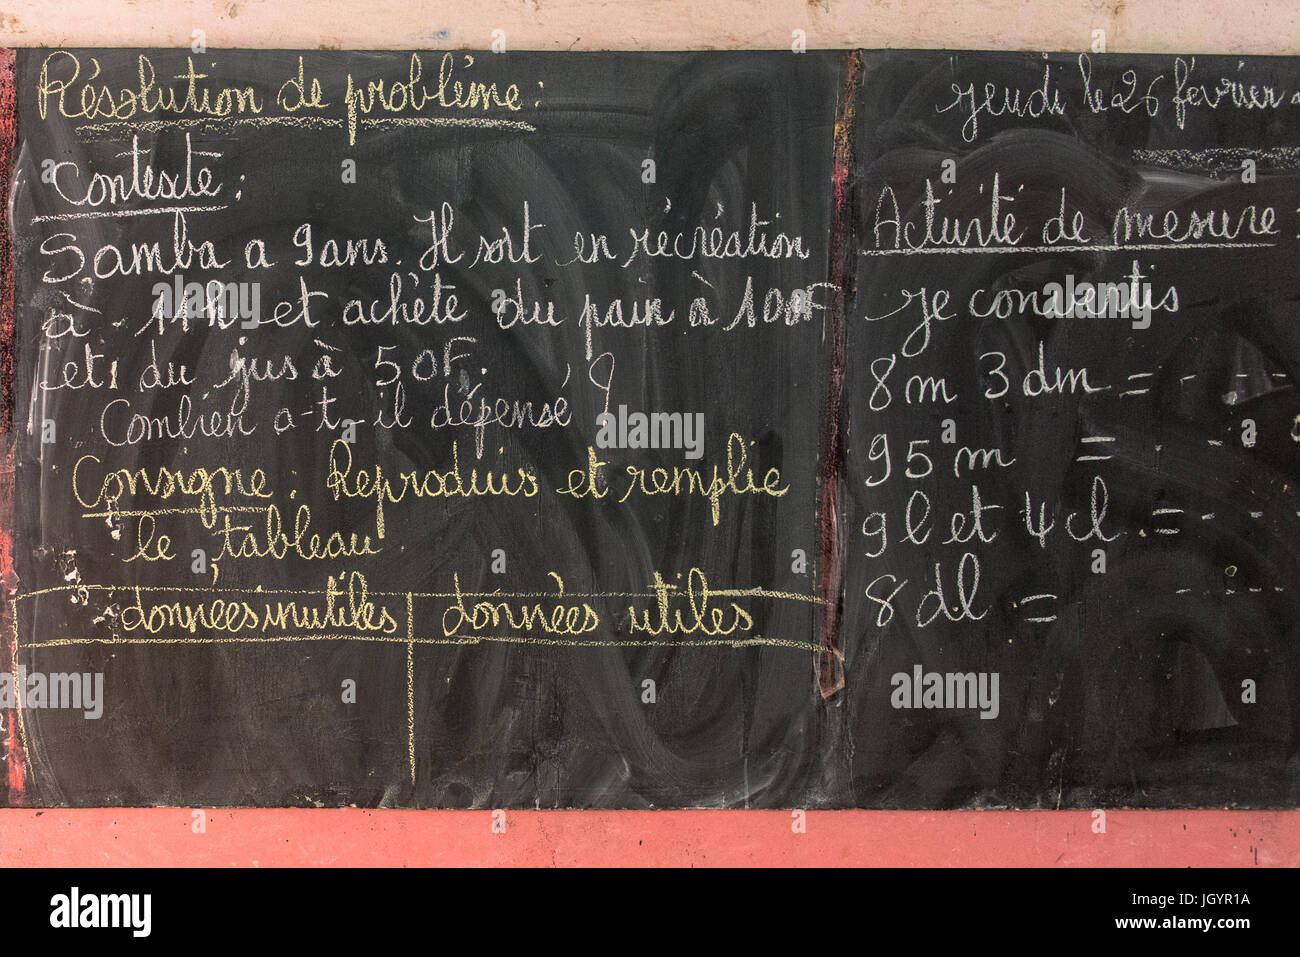 Résolution de problème :
Contexte :
Samba a 9 ans. Il sort en récréation
à 11h et achète du pain à 100F
et du jus à 50F.
Combien a-t-il dépensé ?
Consigne : Reproduis et remplie
le tableau.
données inutiles données utiles
jeudi le 26 février
Activité de mesure :
je convertis
8m 3dm = - - - -
95m = - - - -
9l et 4cl = - - - -
8dl = - - - -
alamy stock photo
Image ID: JGYR1A
www.alamy.com